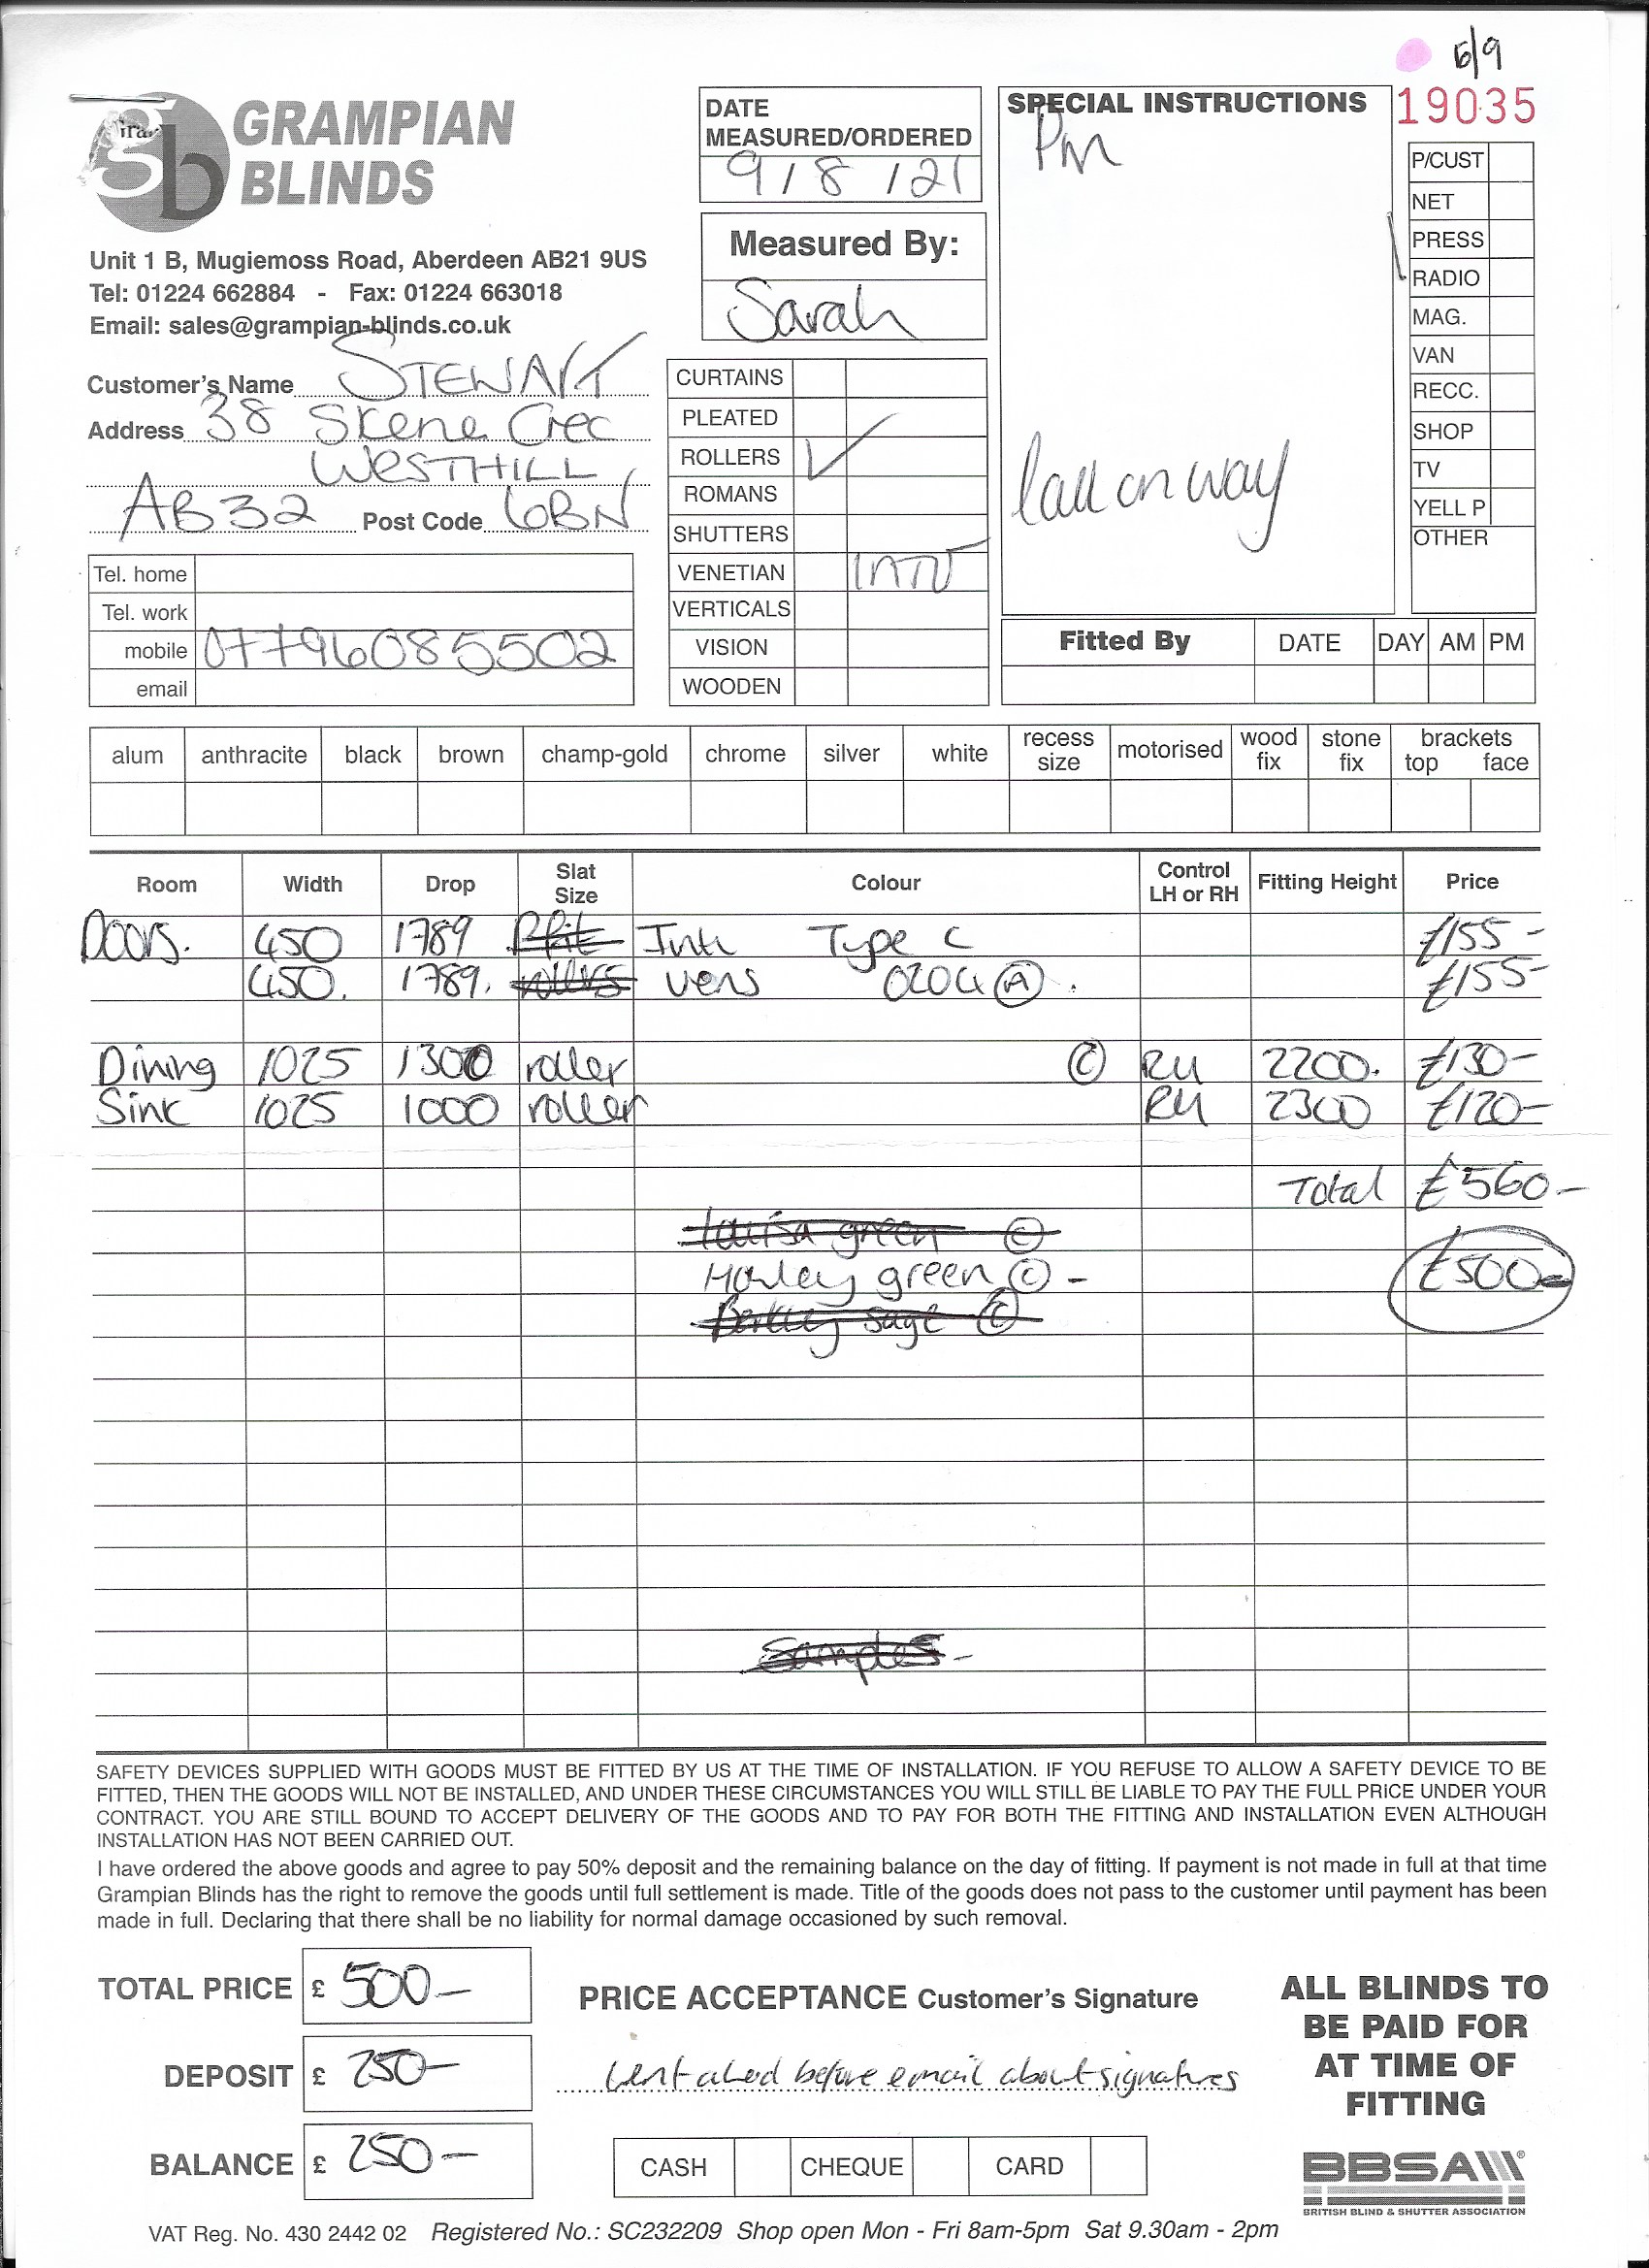 6/9
19035
GRAMPIAN
BLINDS
Unit 1 B, Mugiemoss Road, Aberdeen AB21 9US
Tel: 01224 662884 - Fax: 01224 663018
Email: sales@grampian-blinds.co.uk
Customer's Name STEWART
Address 38 Skene Crec
WESTHILL
AB32 Post Code 6BN
Tel. home
Tel. work
mobile 07796085502
email
DATE
MEASURED/ORDERED
9/8/21
Measured By:
Sarah
CURTAINS
PLEATED
ROLLERS ✓
ROMANS
SHUTTERS
VENETIAN
VERTICALS
VISION
WOODEN
SPECIAL INSTRUCTIONS
Pm
Call on way
P/CUST
NET
PRESS
RADIO
MAG.
VAN
RECC.
SHOP
TV
YELL P
OTHER
Fitted By DATE DAY AM PM
alum anthracite black brown champ-gold chrome silver white recess size motorised wood fix stone fix brackets top face
Room Width Drop Slat Size Colour Control LH or RH Fitting Height Price
Doors. 450 1789 Pfit Intu Type C £155-
450. 1789. rollers vens 0204 (A). £155-
Dining 1025 1300 roller (C) RH 2200. £130-
Sink 1025 1000 roller RH 2300 £120-
Total £560-
louisa green (C)
Harley green (C) - £500-
sage (C)
Samples-
SAFETY DEVICES SUPPLIED WITH GOODS MUST BE FITTED BY US AT THE TIME OF INSTALLATION. IF YOU REFUSE TO ALLOW A SAFETY DEVICE TO BE
FITTED, THEN THE GOODS WILL NOT BE INSTALLED, AND UNDER THESE CIRCUMSTANCES YOU WILL STILL BE LIABLE TO PAY THE FULL PRICE UNDER YOUR
CONTRACT. YOU ARE STILL BOUND TO ACCEPT DELIVERY OF THE GOODS AND TO PAY FOR BOTH THE FITTING AND INSTALLATION EVEN ALTHOUGH
INSTALLATION HAS NOT BEEN CARRIED OUT.
I have ordered the above goods and agree to pay 50% deposit and the remaining balance on the day of fitting. If payment is not made in full at that time
Grampian Blinds has the right to remove the goods until full settlement is made. Title of the goods does not pass to the customer until payment has been
made in full. Declaring that there shall be no liability for normal damage occasioned by such removal.
TOTAL PRICE £ 500-
DEPOSIT £ 250-
BALANCE £ 250-
PRICE ACCEPTANCE Customer's Signature
before email about signatures
CASH CHEQUE CARD
ALL BLINDS TO
BE PAID FOR
AT TIME OF
FITTING
BBSA
BRITISH BLIND & SHUTTER ASSOCIATION
VAT Reg. No. 430 2442 02 Registered No.: SC232209 Shop open Mon - Fri 8am-5pm Sat 9.30am - 2pm